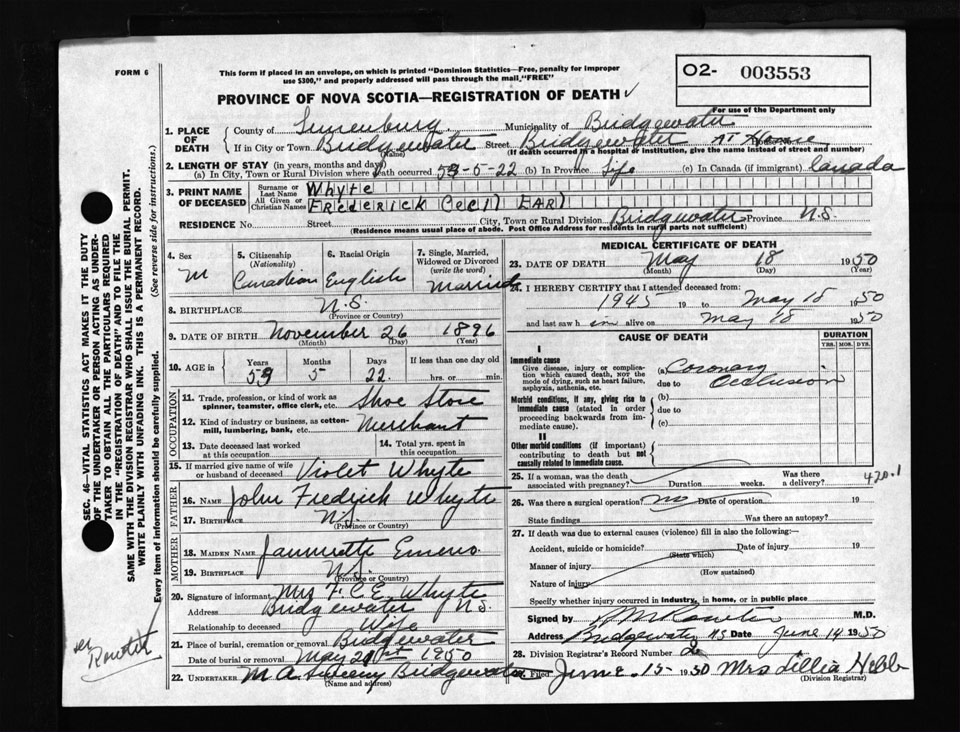 FORM 6
This form if placed in an envelope, on which is printed "Dominion Statistics—Free, penalty for improper
use $300," and properly addressed will pass through the mail "FREE"
O2- 003553
PROVINCE OF NOVA SCOTIA—REGISTRATION OF DEATH
For use of the Department only
1. PLACE OF DEATH
County of Lunenburg Municipality of Bridgewater
If in City or Town Bridgewater Street Bridgewater AT Home
(Name) (If death occurred in hospital or institution, give the name instead of street and number)
2. LENGTH OF STAY (in years, months and days)
(a) In City, Town or Rural Division where death occurred 53-5-22 (b) In Province Life (c) In Canada (if immigrant) Canada
3. PRINT NAME OF DECEASED
Surname or Last Name Whyte
All Given or Christian Names FREDERICK CECIL EARl
RESIDENCE No. Street City, Town or Rural Division Bridgewater Province N.S.
(Residence means usual place of abode. Post Office Address for residents in rural parts not sufficient)
4. Sex M
5. Citizenship (Nationality) Canadian
6. Racial Origin English
7. Single, Married, Widowed or Divorced (write the word) Married
8. BIRTHPLACE N.S.
(Province or Country)
9. DATE OF BIRTH November 26 1896
(Month) (Day) (Year)
10. AGE in Years 53 Months 5 Days 22 If less than one day old hrs. or min.
OCCUPATION
11. Trade, profession, or kind of work as spinner, teamster, office clerk, etc. Shoe Store
12. Kind of industry or business, as cotton-mill, lumbering, bank, etc. Merchant
13. Date deceased last worked at this occupation
14. Total yrs. spent in this occupation
15. If married give name of wife or husband of deceased Violet Whyte
FATHER
16. NAME John Fredrick Whyte
17. BIRTHPLACE N.S.
(Province or Country)
MOTHER
18. MAIDEN NAME
19. BIRTHPLACE N.S.
(Province or Country)
20. Signature of informant Mrs F.C.E. Whyte
Address Bridgewater N.S.
Relationship to deceased Wife
21. Place of burial, cremation or removal Bridgewater
Date of burial or removal May 21st 1950
22. UNDERTAKER M A Sweeny Bridgewater
(Name and address)
MEDICAL CERTIFICATE OF DEATH
23. DATE OF DEATH May 18 1950
(Month) (Day) (Year)
24. I HEREBY CERTIFY that I attended deceased from:
1945 19 to May 18 1950
and last saw h im alive on May 18 1950
CAUSE OF DEATH
DURATION
YRS. MOS. DYS.
I
Immediate cause
Give disease, injury or complication which caused death, NOT the mode of dying, such as heart failure, asphyxia, asthenia, etc.
(a) Coronary
due to Occlusion
Morbid conditions, if any, giving rise to immediate cause (stated in order proceeding backwards from immediate cause).
(b)
due to
(c)
II
Other morbid conditions (if important) contributing to death but not causally related to immediate cause.
25. If a woman, was the death associated with pregnancy? Duration weeks. Was there a delivery?
420.1
26. Was there a surgical operation? no Date of operation 19
State findings Was there an autopsy?
27. If death was due to external causes (violence) fill in also the following:—
Accident, suicide or homicide? Date of injury 19
(State which)
Manner of injury
(How sustained)
Nature of injury
Specify whether injury occurred in industry, in home, or in public place
Signed by M.D.
Address Bridgewater N.S. Date June 14 1950
28. Division Registrar's Record Number
Filed June 15- 1950 Mrs Lillia Hebb
(Division Registrar)
SEC. 46—VITAL STATISTICS ACT MAKES IT THE DUTY
OF THE UNDERTAKER OR PERSON ACTING AS UNDER-
TAKER TO OBTAIN ALL THE PARTICULARS REQUIRED
IN THE "REGISTRATION OF DEATH" AND TO FILE THE
SAME WITH THE DIVISION REGISTRAR WHO SHALL ISSUE THE BURIAL PERMIT.
WRITE PLAINLY WITH UNFADING INK. THIS IS A PERMANENT RECORD.
Every item of information should be carefully supplied. (See reverse side for instructions.)